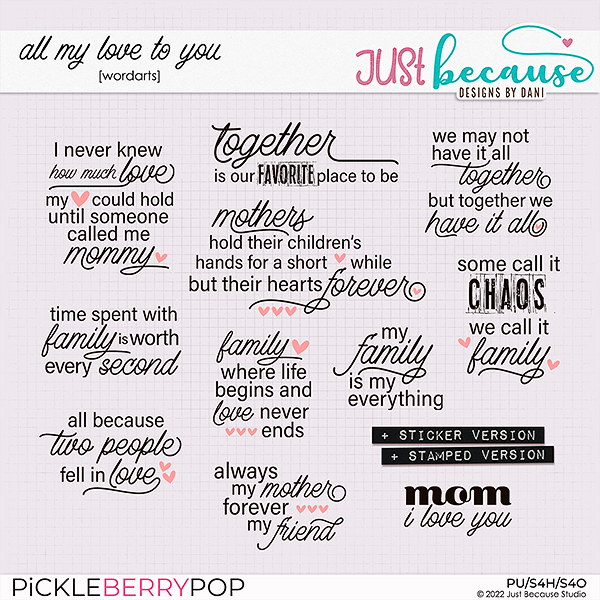 all my love to you
[wordarts]
JUST because
DESIGNS BY DANI
I never knew
how much love
my could hold
until someone
called me
mommy
together
is our FAVORITE place to be
we may not
have it all
together
but together we
have it all
mothers
hold their children's
hands for a short while
but their hearts forever
some call it
CHAOS
we call it
family
time spent with
family is worth
every second
family
where life
begins and
love never
ends
my
family
is my
everything
all because
two people
fell in love
always
my mother
forever
my friend
+ STICKER VERSION
+ STAMPED VERSION
mom
i love you
PiCKLEBERRYPOP
PU/S4H/S4O
©2022 Just Because Studio